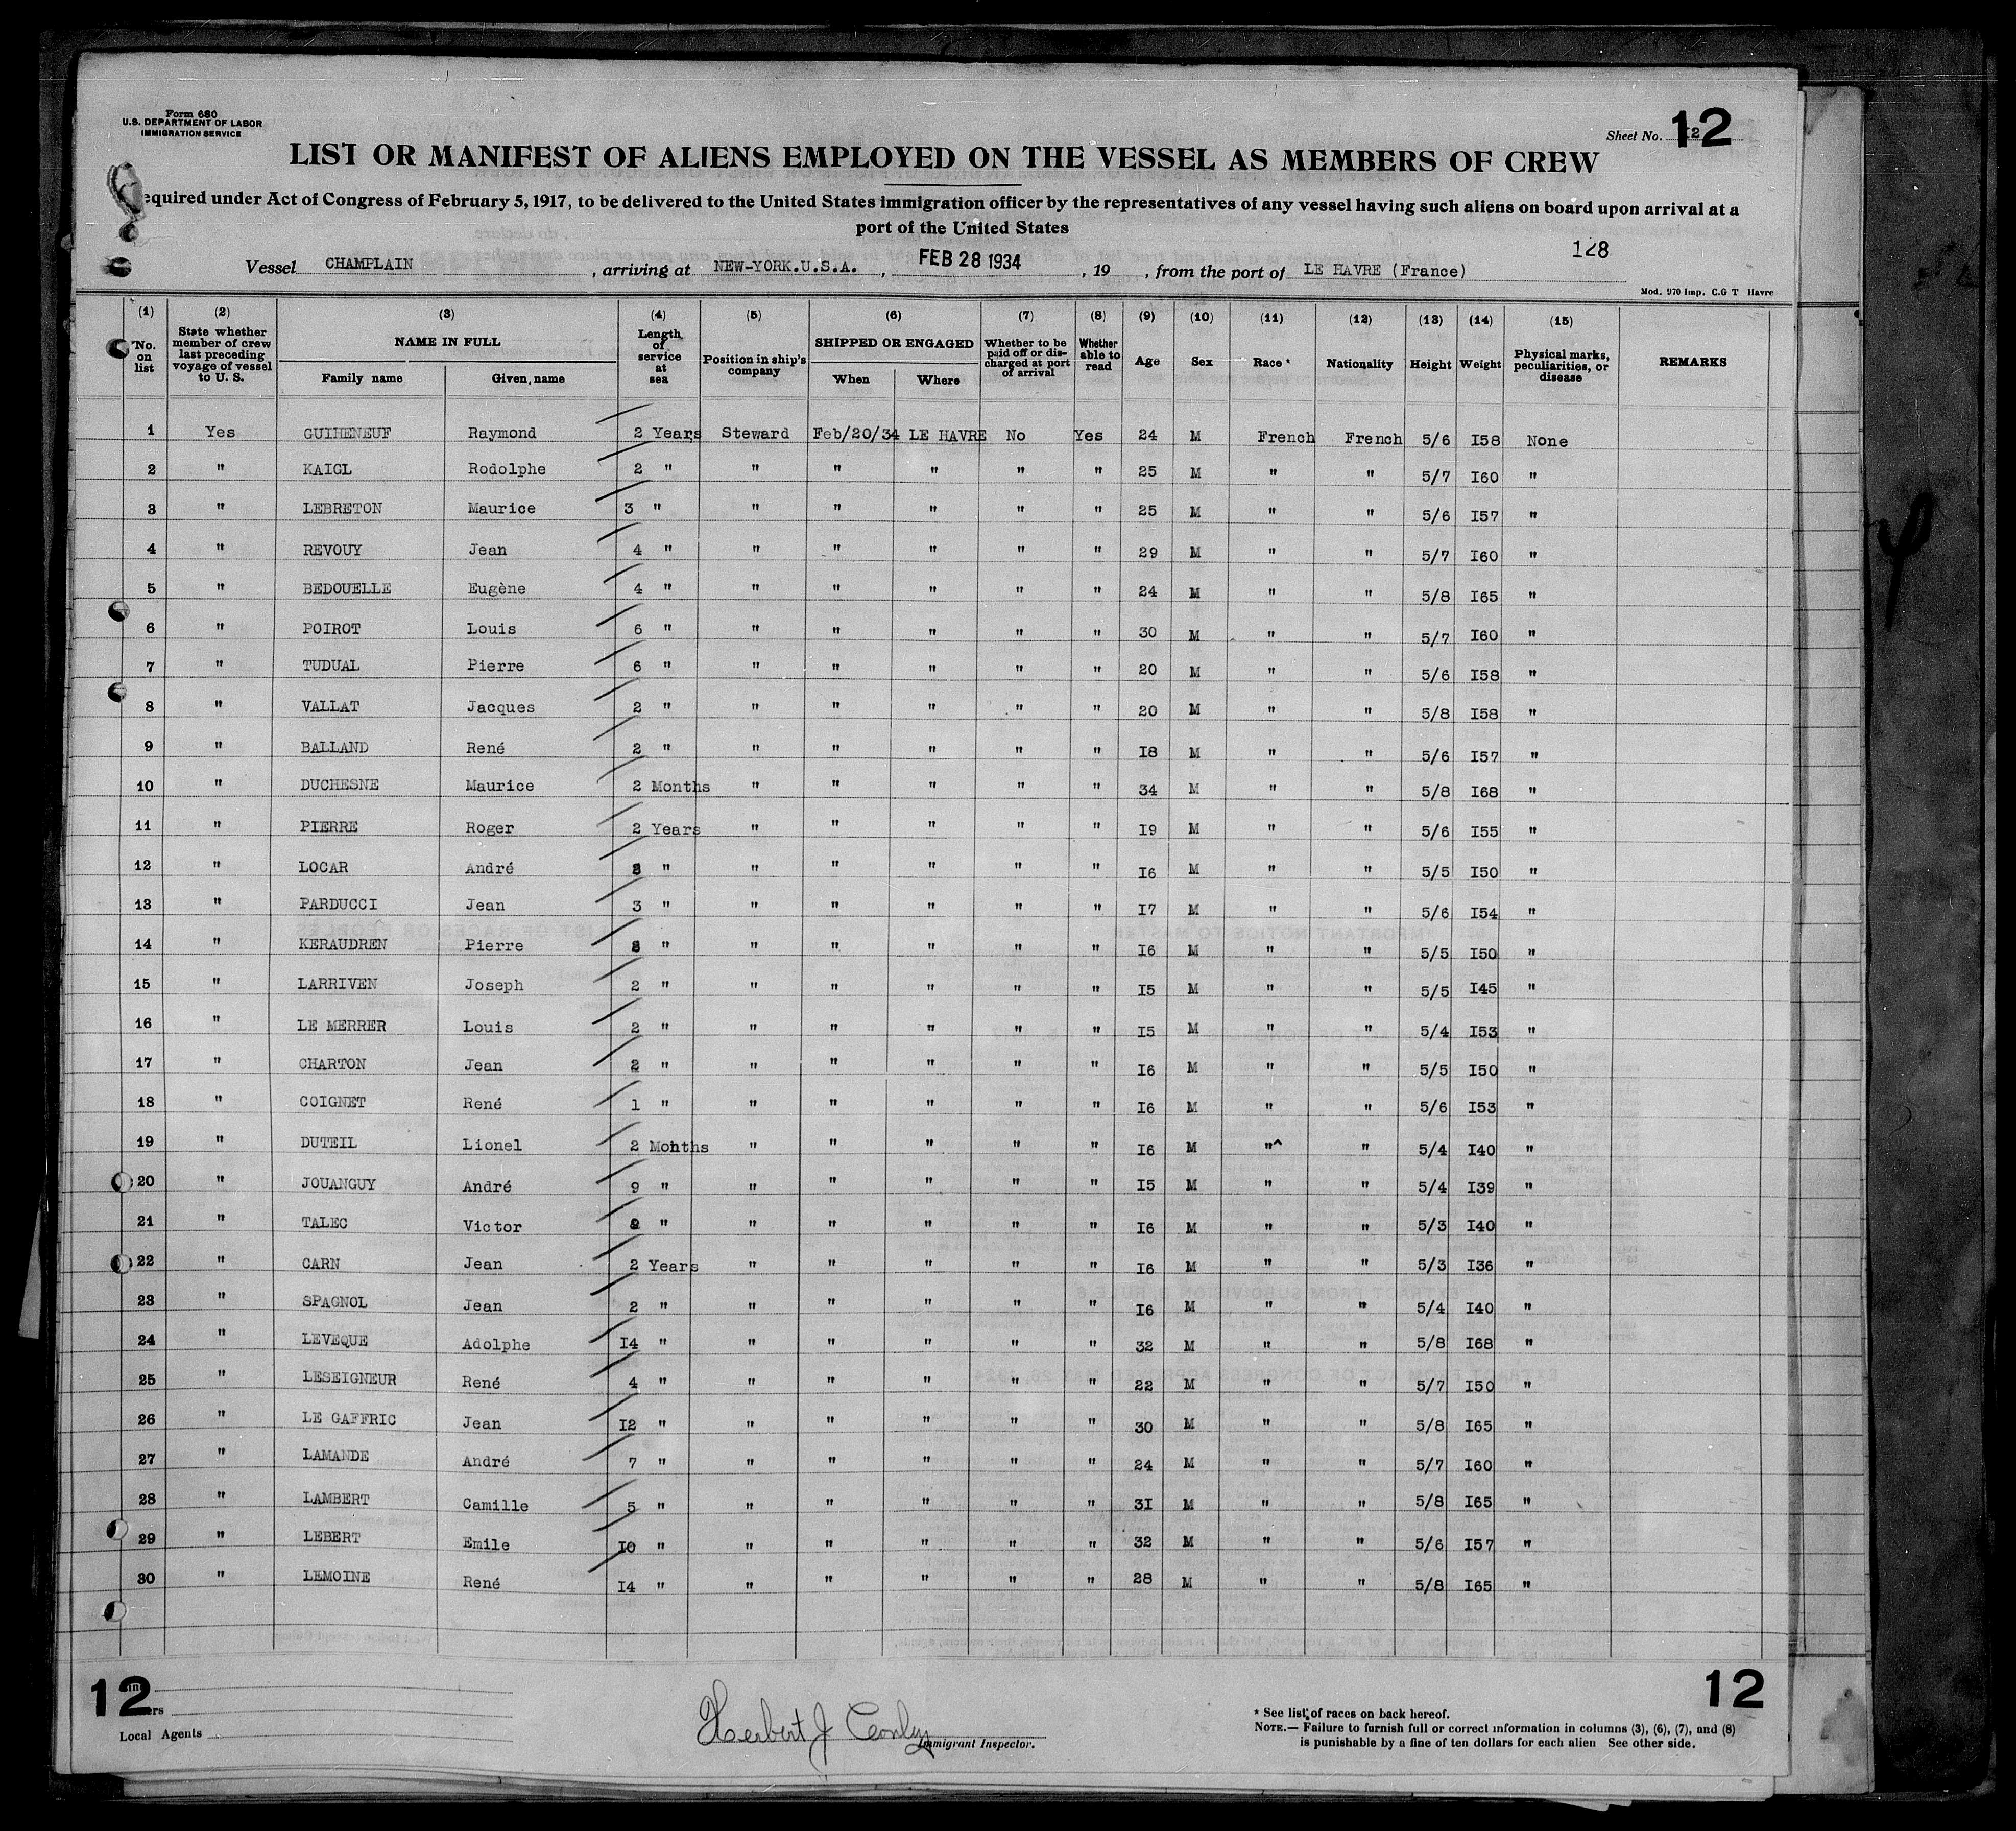 Form 680
U.S. DEPARTMENT OF LABOR
IMMIGRATION SERVICE
Sheet No. 12
12
LIST OR MANIFEST OF ALIENS EMPLOYED ON THE VESSEL AS MEMBERS OF CREW
equired under Act of Congress of February 5, 1917, to be delivered to the United States immigration officer by the representatives of any vessel having such aliens on board upon arrival at a
port of the United States
128
Vessel CHAMPLAIN , arriving at NEW-YORK.U.S.A. , FEB 28 1934 , 19 , from the port of LE HAVRE (France)
Mod. 970 Imp. C.G T Havre
(1) (2) (3) (4) (5) (6) (7) (8) (9) (10) (11) (12) (13) (14) (15)
No. on list State whether member of crew last preceding voyage of vessel to U. S. NAME IN FULL Family name Given name Length of service at sea Position in ship's company SHIPPED OR ENGAGED When Where Whether to be paid off or discharged at port of arrival Whether able to read Age Sex Race * Nationality Height Weight Physical marks, peculiarities, or disease REMARKS
1 Yes GUIHENEUF Raymond 2 Years Steward Feb/20/34 LE HAVRE No Yes 24 M French French 5/6 I58 None
2 " KAIGL Rodolphe 2 " " " " " " 25 M " " 5/7 I60 "
3 " LEBRETON Maurice 3 " " " " " " 25 M " " 5/6 I57 "
4 " REVOUY Jean 4 " " " " " " 29 M " " 5/7 I60 "
5 " BEDOUELLE Eugène 4 " " " " " " 24 M " " 5/8 I65 "
6 " POIROT Louis 6 " " " " " " 30 M " " 5/7 I60 "
7 " TUDUAL Pierre 6 " " " " " " 20 M " " 5/6 I58 "
8 " VALLAT Jacques 2 " " " " " " 20 M " " 5/8 I58 "
9 " BALLAND René 2 " " " " " " I8 M " " 5/6 I57 "
10 " DUCHESNE Maurice 2 Months " " " " " 34 M " " 5/8 I68 "
11 " PIERRE Roger 2 Years " " " " " I9 M " " 5/6 I55 "
12 " LOCAR André " " " " " " I6 M " " 5/5 I50 "
13 " PARDUCCI Jean 3 " " " " " " I7 M " " 5/6 I54 "
14 " KERAUDREN Pierre " " " " " " I6 M " " 5/5 I50 "
15 " LARRIVEN Joseph 2 " " " " " " I5 M " " 5/5 I45 "
16 " LE MERRER Louis 2 " " " " " " I5 M " " 5/4 I53 "
17 " CHARTON Jean 2 " " " " " " I6 M " " 5/5 I50 "
18 " COIGNET René 1 " " " " " " I6 M " " 5/6 I53 "
19 " DUTEIL Lionel 2 Months " " " " " I6 M "^ " 5/4 I40 "
20 " JOUANGUY André 9 " " " " " " I5 M " " 5/4 I39 "
21 " TALEC Victor " " " " " " I6 M " " 5/3 I40 "
22 " CARN Jean 2 Years " " " " " I6 M " " 5/3 I36 "
23 " SPAGNOL Jean 2 " " " " " " I6 M " " 5/4 I40 "
24 " LEVEQUE Adolphe I4 " " " " " " 32 M " " 5/8 I68 "
25 " LESEIGNEUR René 4 " " " " " " 22 M " " 5/7 I50 "
26 " LE GAFFRIC Jean I2 " " " " " " 30 M " " 5/8 I65 "
27 " LAMANDE André 7 " " " " " " 24 M " " 5/7 I60 "
28 " LAMBERT Camille 5 " " " " " " 3I M " " 5/8 I65 "
29 " LEBERT Emile I0 " " " " " " 32 M " " 5/6 I57 "
30 " LEMOINE René I4 " " " " " " 28 M " " 5/8 I65 "
12
12
Local Agents
Herbert J Conley
Immigrant Inspector.
* See list of races on back hereof.
NOTE.— Failure to furnish full or correct information in columns (3), (6), (7), and (8)
is punishable by a fine of ten dollars for each alien See other side.